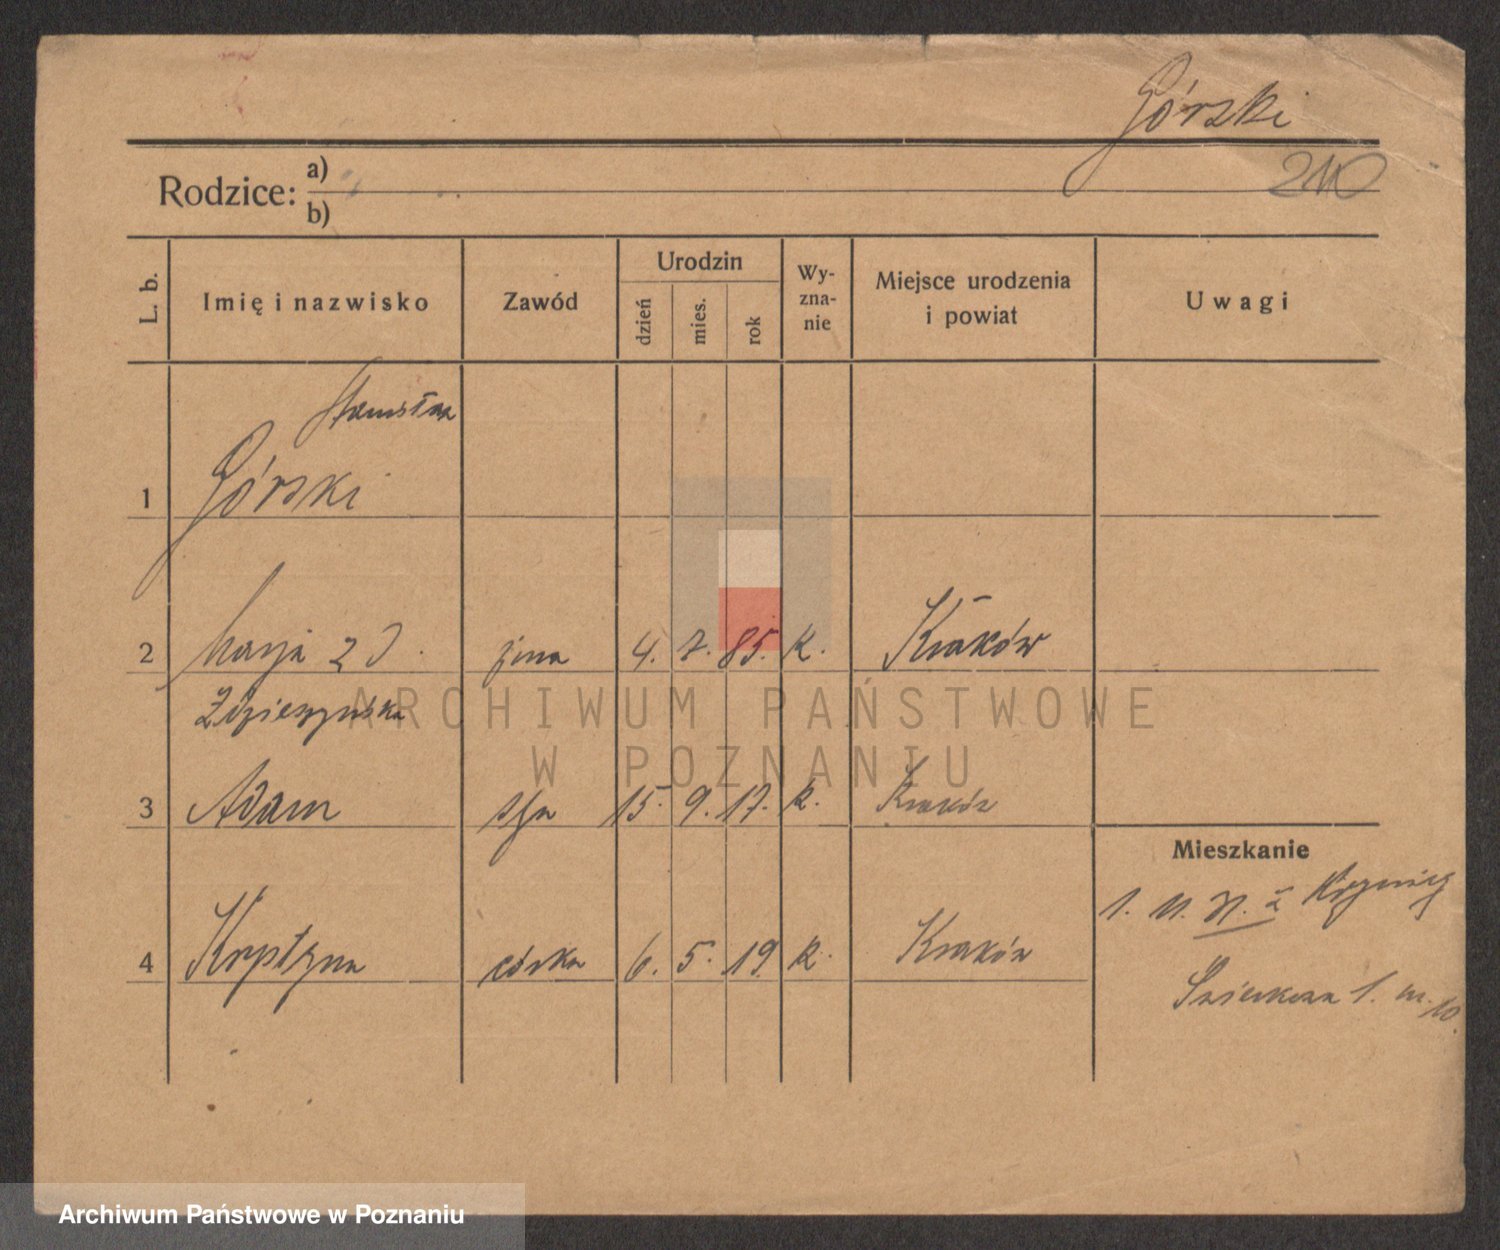 Górski
210
Rodzice: a)
b)
L. b. Imię i nazwisko Zawód Urodzin dzień mies. rok Wy-zna-nie Miejsce urodzenia i powiat Uwagi
Stanisław
1 Górski
2 Marja z d. żona 4. 7. 85. k. Kraków
ARCHIWUM PAŃSTWOWE
W POZNANIU
3 Adam syn 15. 9. 17. k. Kraków
Mieszkanie
1. 11. 31. z
4 Krystyna córka 6. 5. 19 k. Kraków
1. m. 10.
Archiwum Państwowe w Poznaniu